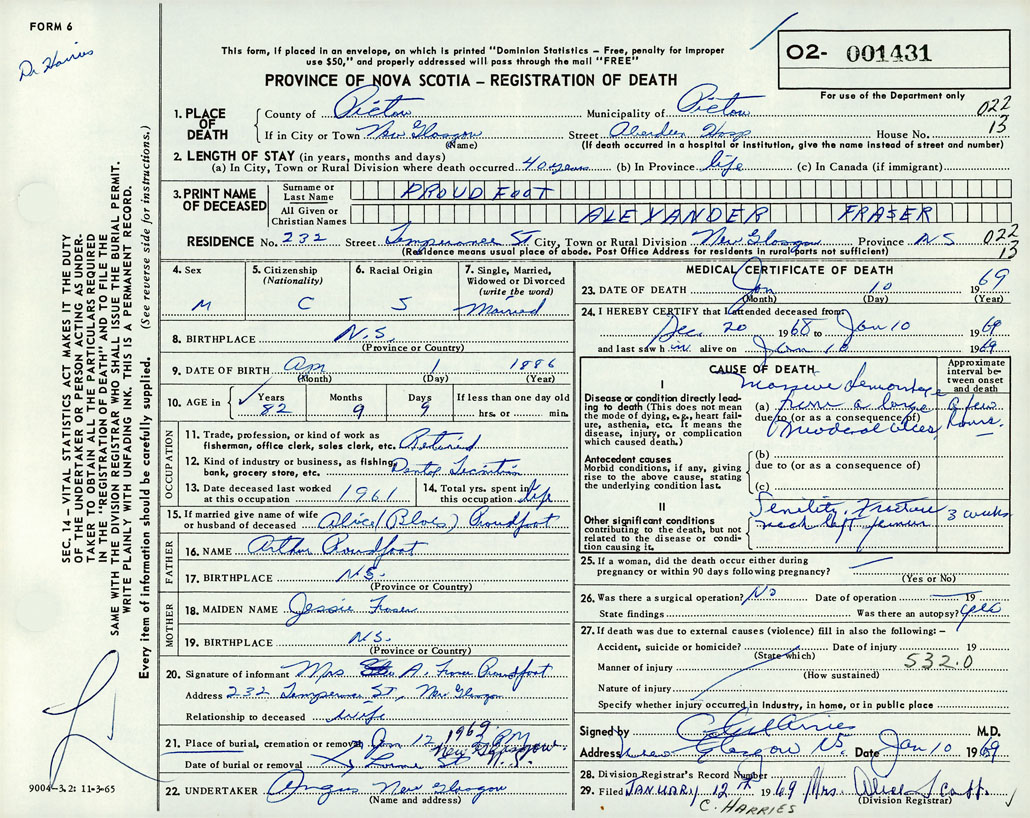 FORM 6
Dr Harries
This form, if placed in an envelope, on which is printed "Dominion Statistics – Free, penalty for improper
use $50," and properly addressed will pass through the mail "FREE"
PROVINCE OF NOVA SCOTIA – REGISTRATION OF DEATH
O2- 001431
For use of the Department only
1. PLACE OF DEATH
County of Pictou Municipality of Pictou 022
If in City or Town New Glasgow Street Aberdeen Hosp House No. 13
(Name) (If death occurred in a hospital or institution, give the name instead of street and number)
2. LENGTH OF STAY (in years, months and days)
(a) In City, Town or Rural Division where death occurred 40 years (b) In Province life (c) In Canada (if immigrant)
3. PRINT NAME OF DECEASED
Surname or Last Name PROUDFOOT
All Given or Christian Names ALEXANDER FRASER
RESIDENCE No. 232 Street Temperance ST City, Town or Rural Division New Glasgow Province NS 022
(Residence means usual place of abode. Post Office Address for residents in rural parts not sufficient) 13
4. Sex M
5. Citizenship (Nationality) C
6. Racial Origin S
7. Single, Married, Widowed or Divorced (write the word) Married
8. BIRTHPLACE N.S.
(Province or Country)
9. DATE OF BIRTH 1 1886
(Month) (Day) (Year)
10. AGE in Years 82 Months 9 Days 9 If less than one day old hrs. or min.
OCCUPATION
11. Trade, profession, or kind of work as fisherman, office clerk, sales clerk, etc. Retired
12. Kind of industry or business, as fishing, bank, grocery store, etc.
13. Date deceased last worked at this occupation 1961
14. Total yrs. spent in this occupation life
15. If married give name of wife or husband of deceased Alice Proudfoot
FATHER
16. NAME Arthur Proudfoot
17. BIRTHPLACE N.S.
(Province or Country)
MOTHER
18. MAIDEN NAME Jessie Fraser
19. BIRTHPLACE N.S.
(Province or Country)
20. Signature of informant Mrs A. Fraser Proudfoot
Address 232 Temperance ST, New Glasgow
Relationship to deceased wife
21. Place of burial, cremation or removal Jan 12 1969 PM
New Glasgow
Date of burial or removal St N.S.
22. UNDERTAKER Angus New Glasgow
(Name and address)
MEDICAL CERTIFICATE OF DEATH
23. DATE OF DEATH Jan 10 1969
(Month) (Day) (Year)
24. I HEREBY CERTIFY that I attended deceased from
Dec 20 1968 to Jan 10 1969
and last saw him alive on Jan 10 1969
CAUSE OF DEATH
Approximate interval between onset and death
I
Disease or condition directly leading to death (This does not mean the mode of dying, e.g., heart failure, asthenia, etc. It means the disease, injury, or complication which caused death.)
Massive Hemorrhage
(a) from a large
due to (or as a consequence of)
duodenal ulcer
a few hours.
Antecedent causes
Morbid conditions, if any, giving rise to the above cause, stating the underlying condition last.
(b)
due to (or as a consequence of)
(c)
II
Other significant conditions
contributing to the death, but not related to the disease or condition causing it.
Senility. Fracture
neck left femur 3 weeks
25. If a woman, did the death occur either during pregnancy or within 90 days following pregnancy? —
(Yes or No)
26. Was there a surgical operation? No Date of operation — 19
State findings Was there an autopsy? yes
27. If death was due to external causes (violence) fill in also the following: –
Accident, suicide or homicide? Date of injury 19
(State which)
Manner of injury 532.0
(How sustained)
Nature of injury
Specify whether injury occurred in industry, in home, or in public place
Signed by C Harries M.D.
Address New Glasgow NS. Date Jan 10 1969
28. Division Registrar's Record Number
29. Filed JANUARY 12th 1969 Mrs. Alice Scott.
(Division Registrar)
C. HARRIES
SEC. 14 – VITAL STATISTICS ACT MAKES IT THE DUTY
OF THE UNDERTAKER OR PERSON ACTING AS UNDER-
TAKER TO OBTAIN ALL THE PARTICULARS REQUIRED
IN THE "REGISTRATION OF DEATH" AND TO FILE THE
SAME WITH THE DIVISION REGISTRAR WHO SHALL ISSUE THE BURIAL PERMIT.
WRITE PLAINLY WITH UNFADING INK. THIS IS A PERMANENT RECORD.
Every item of information should be carefully supplied. (See reverse side for instructions.)
9004-3.2: 11-3-65